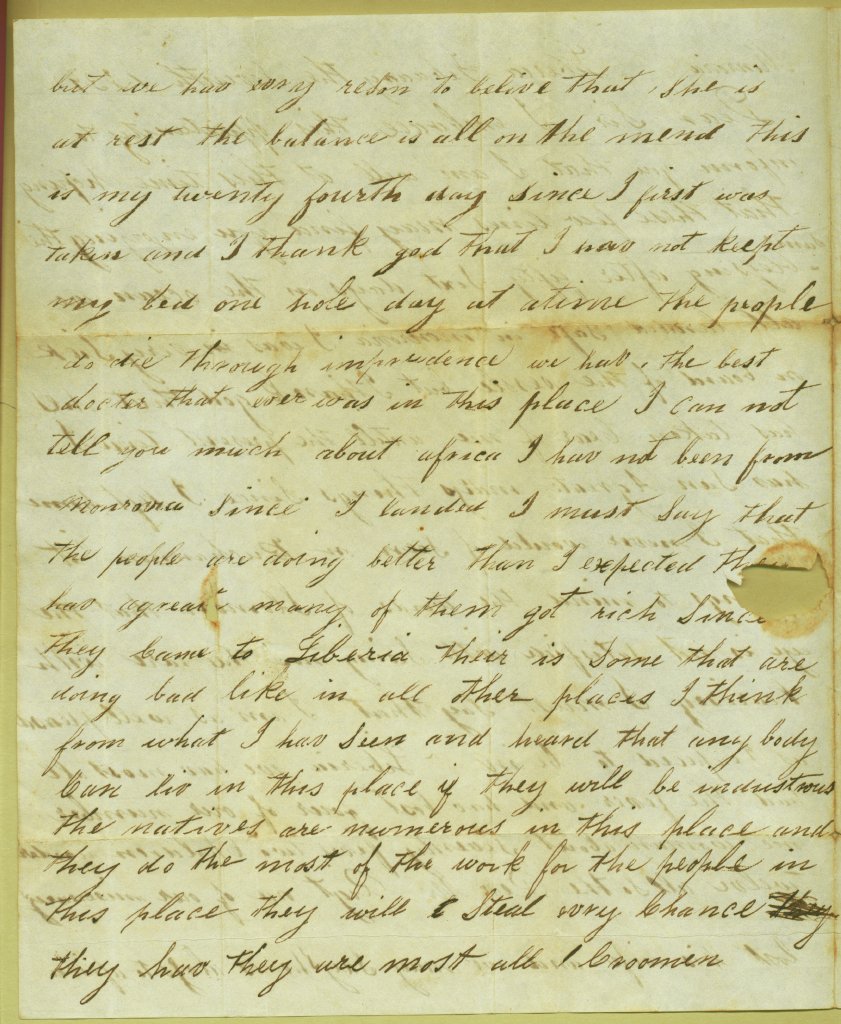 but we hav evry reson to belive that she is
at rest the balance is all on the mend this
is my twenty fourth day since I first was
taken and I thank god that I hav not keept
my bed one hole day at atime the people
do die through imprudence we hav the best
docter that ever was in this place I can not
tell you much about africa I hav not been from
Monrovia since I landed I must say that
the people are doing better than I expected
hav agreat many of them got rich since
they Came to Liberia their is some that are
doing bad like in all other places I think
from what I hav seen and heard that any body
Can liv in this place if they will be industrous
the natives are numerous in this place and
they do the most of the work for the people in
this place they will Steal evry Chance they
they hav they are most all Croomen